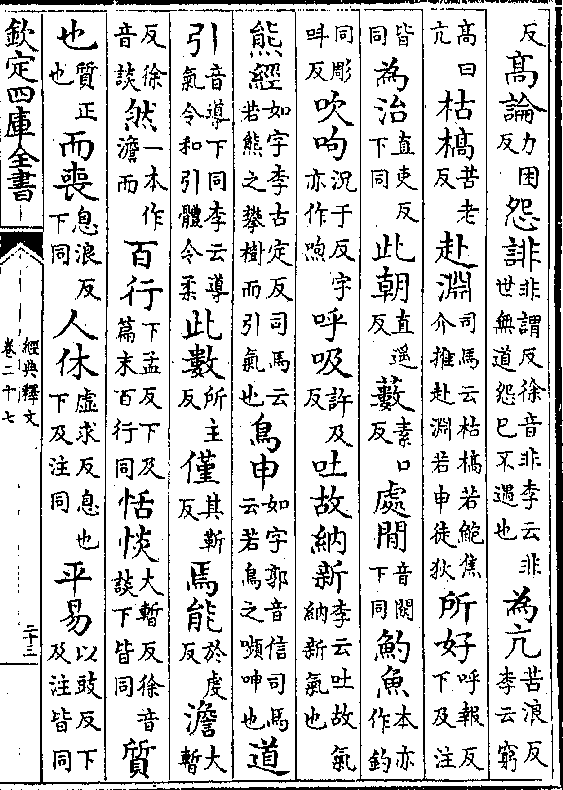 反高論力困反怨誹非謂反徐音非李云非世無道怨已不遇也為亢苦浪反李云窮
髙曰亢枯槁苦老反赴淵司馬云枯槁若鮑焦介推赴淵若申徒狄所好呼報反下及注
皆同為治直吏反下同此朝直遥反藪素口反處閒音閑下同魡魚本亦作釣
同彫呌反吹呴況于反字亦作喣呼吸許及反吐故納新李云吐故氣納新氣也
熊經如字李古定反司馬云若熊之攀樹而引氣也鳥申如字郭音信司馬云若鳥之嚬呻也道
引音導下同李云導氣令和引體令柔此數所主反僅其靳反焉能於虔反澹大暫
反徐音談然一本作澹而百行下孟反下及篇末百行同恬惔大暫反徐音談下皆同質
也質正也而喪息浪反下同人休虚求反息也下及注同平易以豉反下及注皆同
欽定四庫全書
經典釋文
卷二十七
二十三